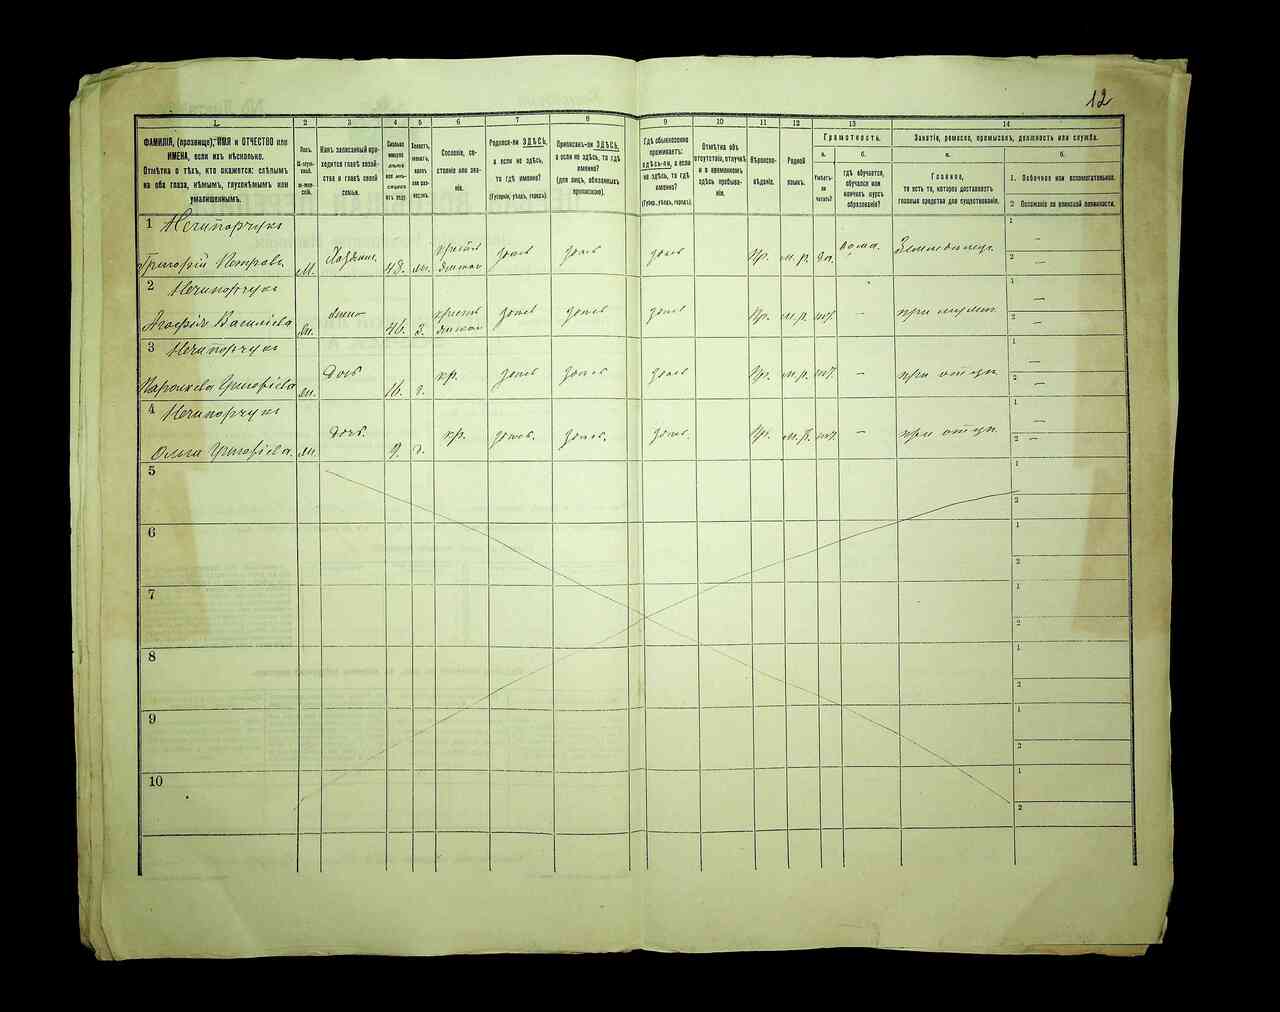 12
1 2 3 4 5 6 7 8 9 10 11 12 13 14
ФАМИЛІЯ, (прозвище), ИМЯ и ОТЧЕСТВО или
ИМЕНА, если ихъ нѣсколько.
Отмѣтка о тѣхъ, кто окажется: слѣпымъ
на оба глаза, нѣмымъ, глухонѣмымъ или
умалишеннымъ.
Полъ.
М-мужской.
Ж-женскій.
Какъ записанный приходится главѣ хозяйства и главѣ своей
семьи.
Сословіе, состояніе или званіе.
Родился-ли ЗДѢСЬ,
а если не здѣсь,
то гдѣ именно?
(Губернія, уѣздъ, городъ).
Приписанъ-ли ЗДѢСЬ,
а если не здѣсь, то гдѣ
именно?
(для лицъ, обязанныхъ
припискою).
Гдѣ обыкновенно
проживаетъ:
здѣсь-ли, а если
не здѣсь, то гдѣ
именно?
(Губерн., уѣздъ, городъ).
Отмѣтка объ
отсутствіи, отлучкѣ
и о временномъ
здѣсь пребываніи.
Вѣроисповѣданіе.
Родной
языкъ.
Грамотность.
а.
Умѣетъ-ли
читать?
б.
гдѣ обучается,
обучался или
кончилъ курсъ
образованія?
Занятіе, ремесло, промыселъ, должность или служба.
а.
Главное,
то есть то, которое доставляетъ
главныя средства для существованія.
б.
1. Побочное или вспомогательное.
2 Положеніе по воинской повинности.
1 Нечипорчукъ
Григорій Петровъ М. Хозяинъ 48. здѣсь здѣсь здѣсь Пр. м.р. да. дома. 1 — 2 —
2 Нечипорчукъ
Агафія Васильева жена 46. здѣсь здѣсь здѣсь Пр. м.р. — при мужѣ 1 — 2 —
3 Нечипорчукъ
Григорьева дочь 16. кр. здѣсь здѣсь здѣсь Пр. м.р. — при отцѣ 1 — 2 —
4 Нечипорчукъ
Ольга Григорьева дочь 9. кр. здѣсь. здѣсь. здѣсь. Пр. м.р. — при отцѣ 1 2 —
5 1 2
6 1 2
7 1 2
8 1 2
9 1 2
10 1 2